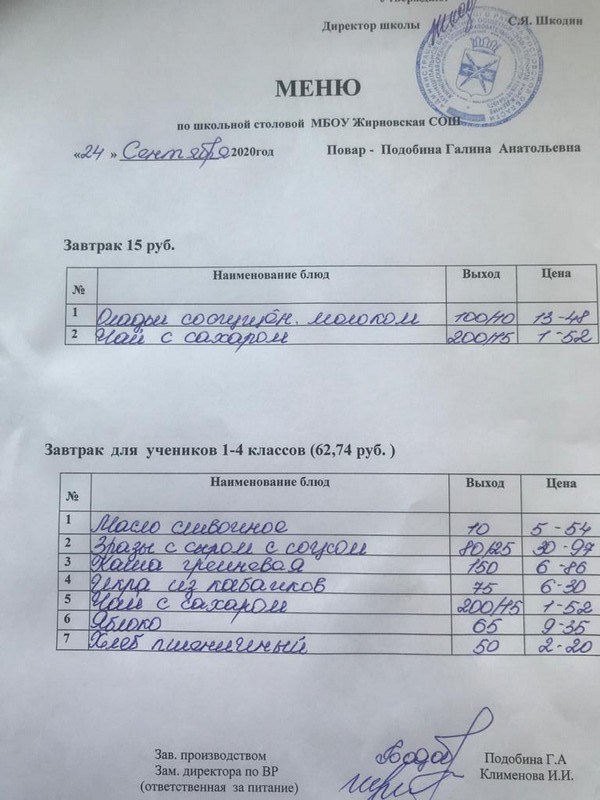 Директор школы С.Я. Шкодин
МЕНЮ
по школьной столовой МБОУ Жирновская СОШ
«24 » Сентября 2020год Повар - Подобина Галина Анатольевна
Завтрак 15 руб.
№ Наименование блюд Выход Цена
1 Оладьи со сгущён. молоком 100/10 13-48
2 Чай с сахаром 200/15 1-52
Завтрак для учеников 1-4 классов (62,74 руб. )
№ Наименование блюд Выход Цена
1 Масло сливочное 10 5-54
2 Зразы с сыром с соусом 80/25 30-97
3 Каша гречневая 150 6-86
4 Икра из кабачков 75 6-30
5 Чай с сахаром 200/15 1-52
6 Яблоко 65 9-35
7 Хлеб пшеничный 50 2-20
Зав. производством Подобина Г.А
Зам. директора по ВР Клименова И.И.
(ответственная за питание)